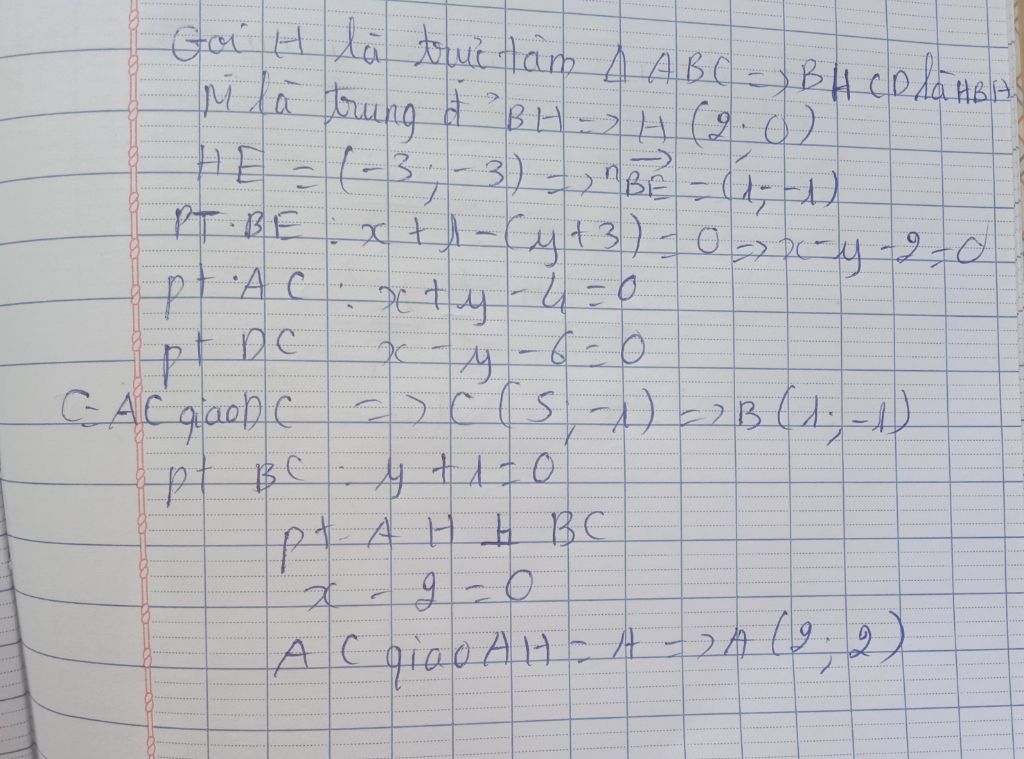 Gọi H là trực tâm Δ ABC => BHCD là HBH
M là trung đ' BH => H (2; 0)
HE = (-3; -3) => n BE = (1; -1)
PT. BE : x + 1 - (y + 3) = 0 => x - y - 2 = 0
pt. AC : x + y - 4 = 0
pt DC x - y - 6 = 0
C = AC giao DC => C (5; -1) => B (1; -1)
pt BC : y + 1 = 0
pt AH ⊥ BC
x - 2 = 0
AC giao AH = A => A (2; 2)